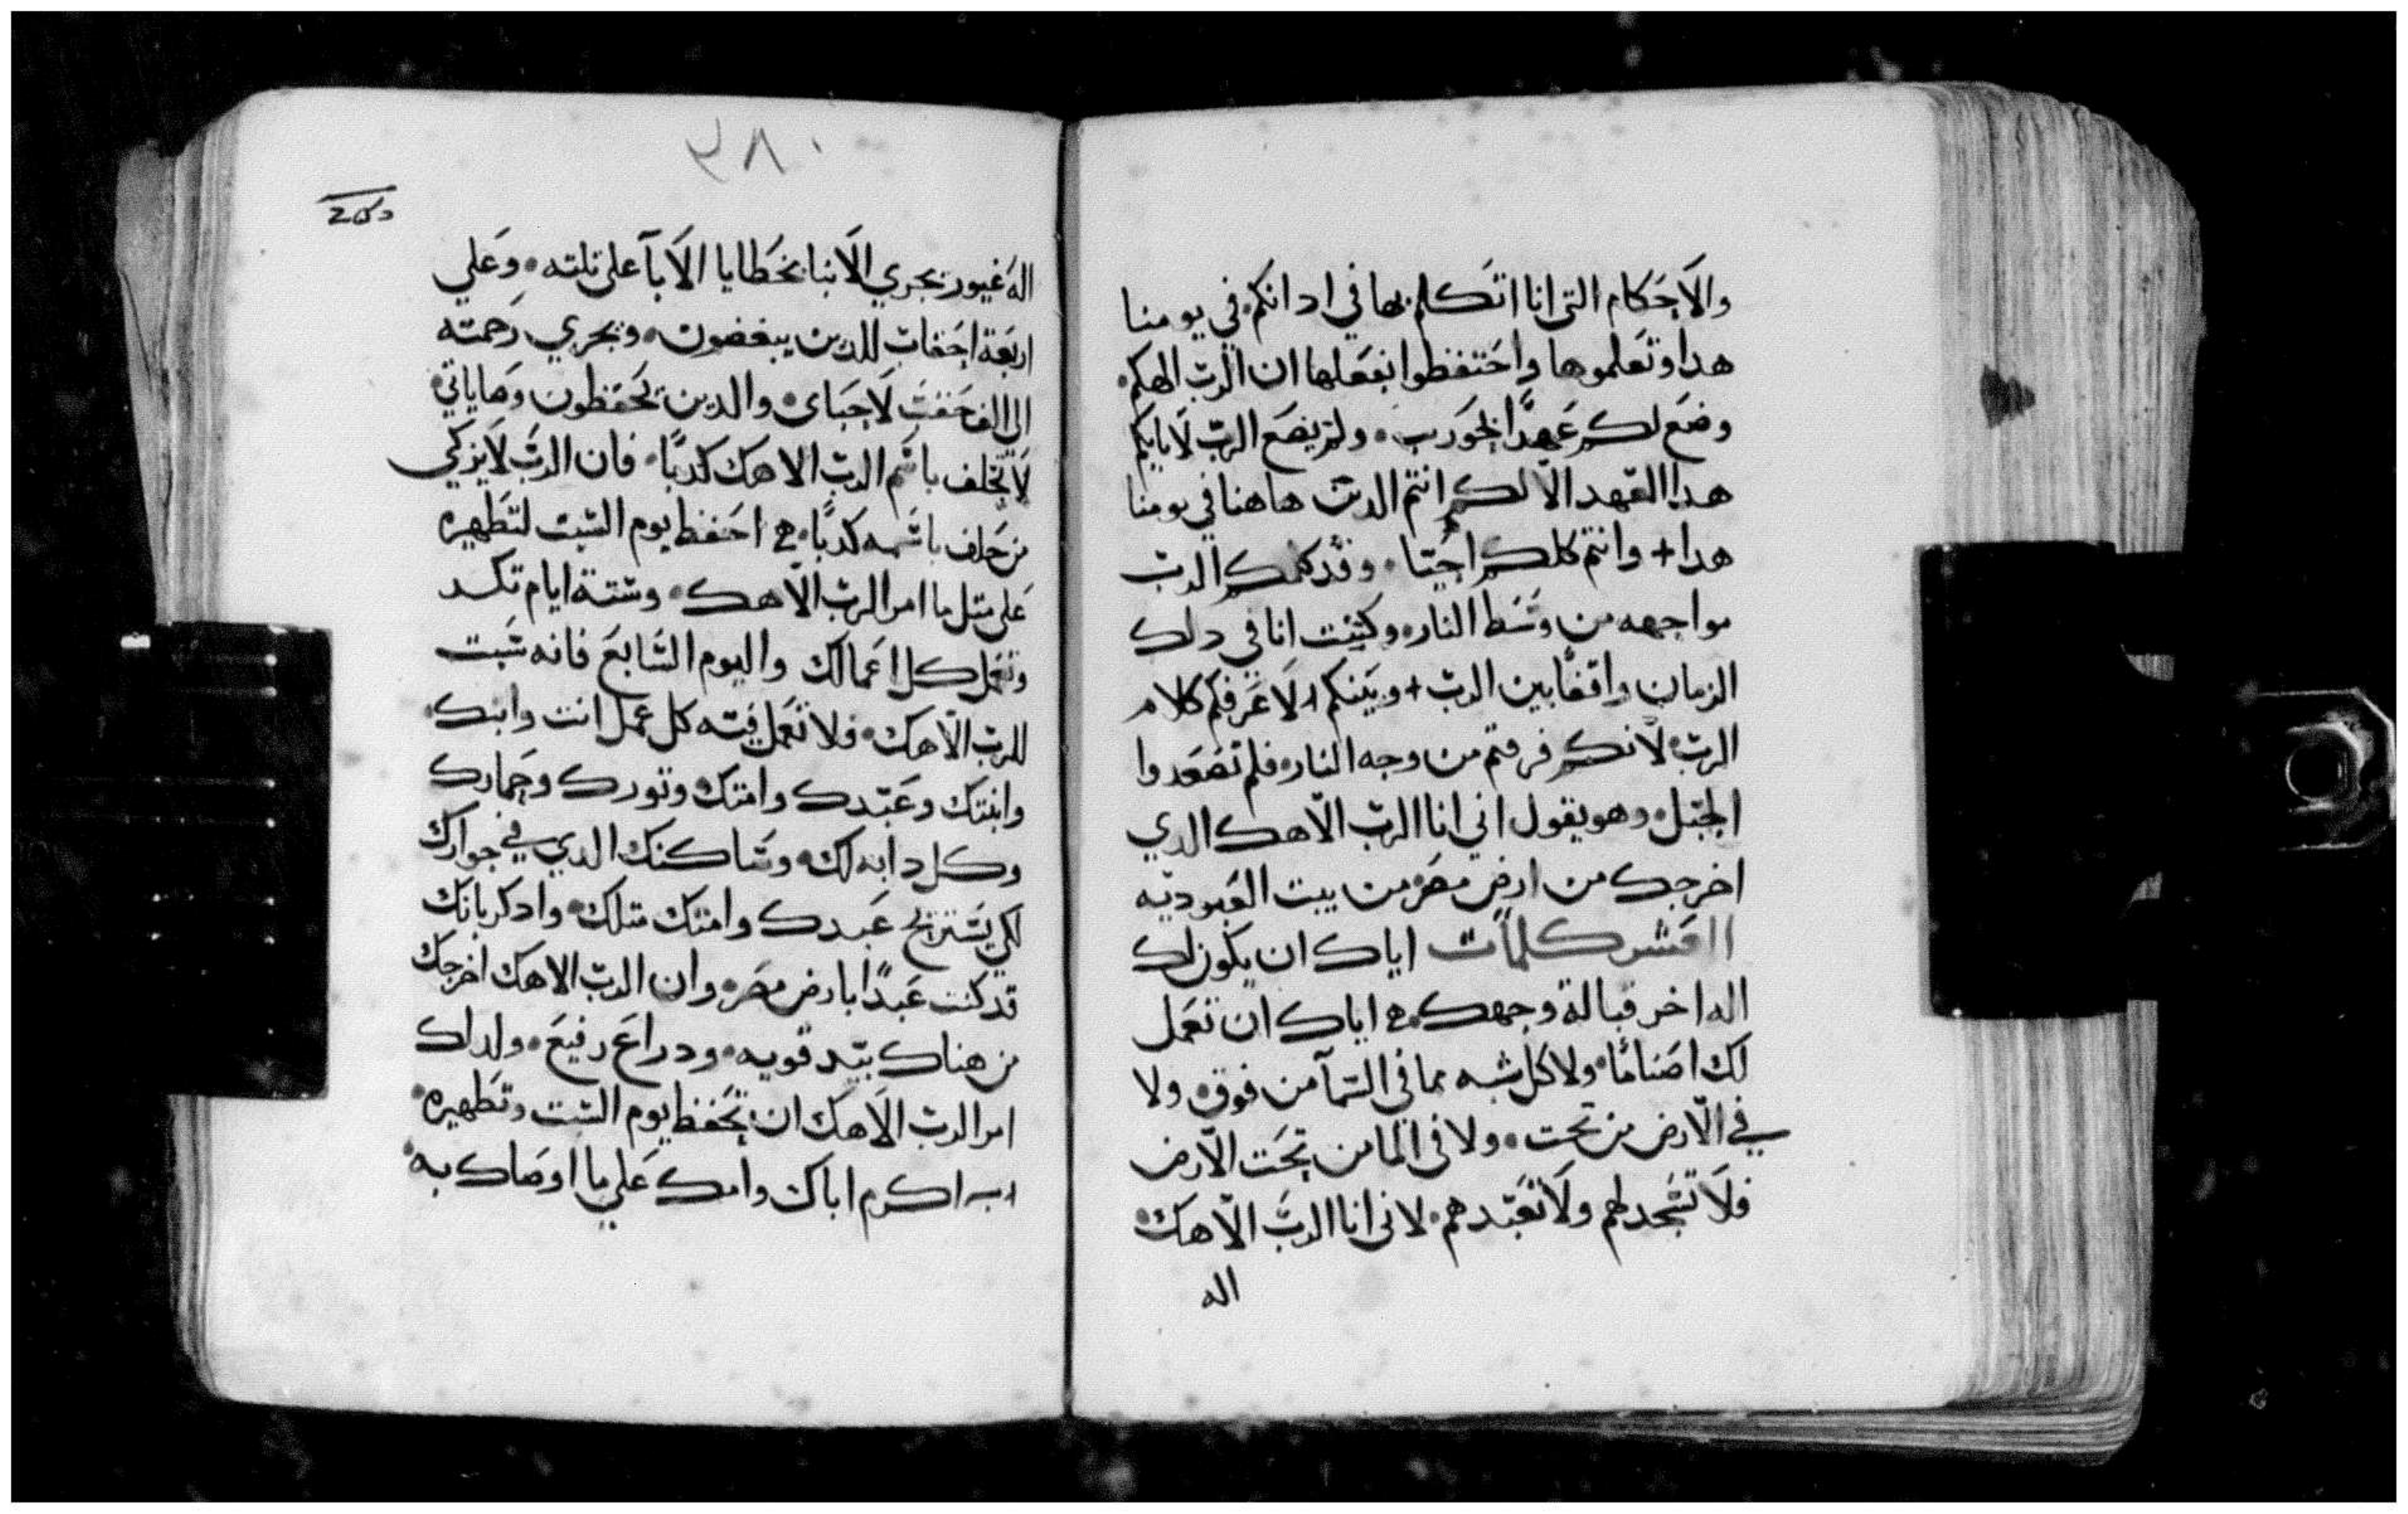 والاحكام التى انا اتكلم بها في ادانكم في يومنا
هدا وتعلموها واحتفظوا بفعلها ان الرب الهكم
وضع لكم عهدًا بحوريب ولم يضع الرب لابايكم
هدا العهد الا لكم انتم الدين هاهنا في يومنا
هدا + وانتم كلكم احيا وقد كلمكم الرب
مواجهه من وسط النار وكنت انا في دلك
الزمان واقفًا بين الرب + وبينكم لاعرفكم كلام
الرب لانكم فرقتم من وجه النار فلم تصعدوا
الجبل وهو يقول اني انا الرب الاهك الدي
اخرجك من ارض مصر من بيت العبوديه
العشر كلمات اياك ان يكون لك
اله اخر قبالة وجهك اياك ان تعمل
لك اصنامًا ولا كل شبه مما في السمآ من فوق ولا
في الارض من تحت ولا في الما من تحت الارض
فلا تسجد لهم ولا تعبدهم لانى انا الرب الاهك
اله
٠٨٢
اله غيور نجري الابنا بخطايا الابآ على تلته وعلي
اربعة احقاب للدين يبغضون ونجري رحمته
الي الف حقب لاحباى والدين يحفظون وصاياتي
لا تحلف باسم الرب الاهك كدبًا فان الرب لا يزكي
من حلف باسمه كدبًا احفظ يوم السبت لتطهره
على متل ما امر الرب الاهك وستة ايام تكد
وتعمل كل اعمالك واليوم السابع فانه سبت
للرب الاهك فلا تعمل فيه كل عمل انت وابنك
وابنتك وعبدك وامتك وتورك وحمارك
وكل دابه لك وساكنك الدي في جوارك
لكي يستريح عبدك وامتك متلك وادكر بانك
قد كنت عبدًا بارض مصر وان الرب الاهك اخرجك
من هناك بيد قويه ودراع رفيع ولدلك
امر الرب الاهك ان تحفظ يوم السبت وتطهره
اكرم اباك وامك على ما اوصاك به